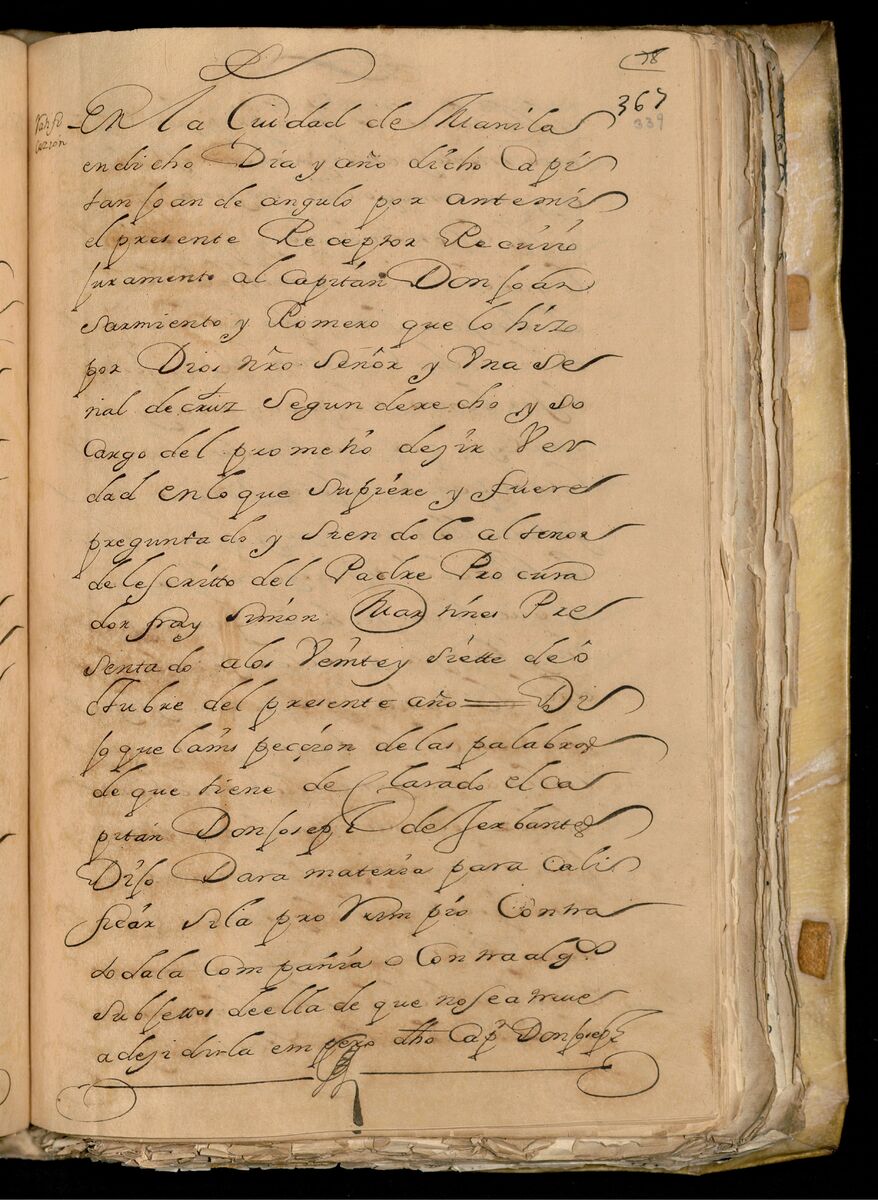 78
367
339
Ratifi
cacion
En la Ciudad de Manila
en dicho Dia y año dicho Capi
tan Joan de angulo por antemi
el presente Receptor Recivio
juramento al Capitan Don Joan
sarmiento y Romero que lo hizo
por Dios nro señor y Una se
ñal de cruz segun derecho y so
Cargo del prometio dejir Ver
dad en lo que supiere y fuere
preguntado y siendolo al tenor
del escritto del Padre Procura
dor fray simon Martines Pre
sentado a los Veinte y siette de o
ctubre del presente año = Di
jo que la inspecçion de las palabras
de que tiene declarado el ca
pitan Don Joseph de Serbantes
Dijo Dara materia para Cali
ficar si la pro Rumpio Contra
todala Compañia o Contra algs.
subjettos de ella de que no se atreve
a dejidirla empero dho Capn Don Joseph